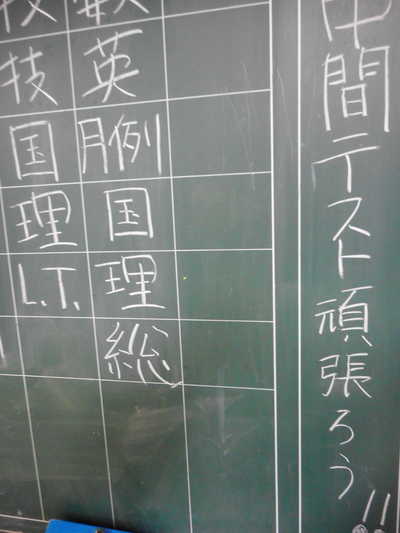 中間テスト頑張ろう!!
数英月例国理総
技技国理L.T.